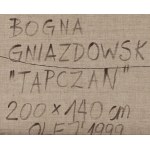 BOGNA
GNIAZDOWSK
"TAPCZAN"
200 × 140 cm
OLEJ 1999